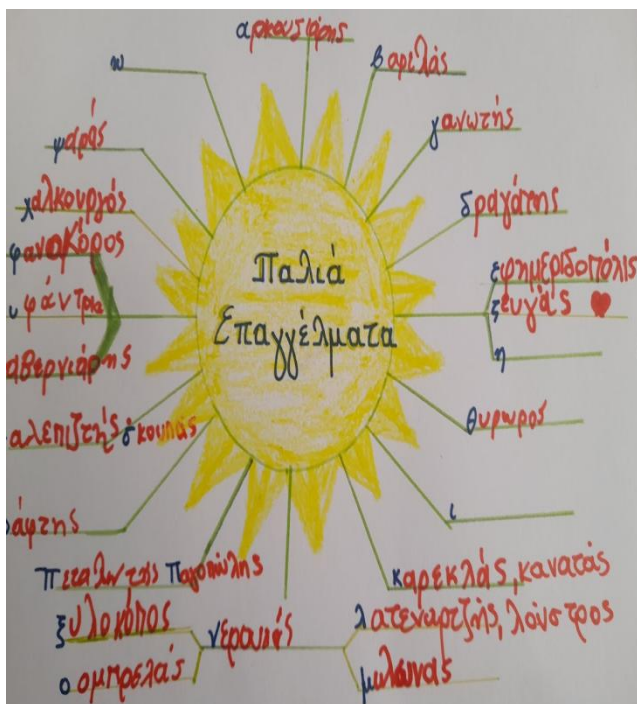 αρκουδιάρης
βαρελάς
γανωτής
δραγάτης
εφημεριδοπόλις
ζευγάς
η
θυρωρος
ι
καρεκλάς, κανατάς
λατεναρτζής, λούστρος
μυλωνας
νερουλάς
ξυλοκόπος
ο ομπρελάς
πεταλωτής παγοπώλης
άφτης
αλεπιτζής σκουπάς
αβερνιάρης
υφάντρια
φανοκόρος
χαλκουργός
ψαράς
ω
Παλιά
Επαγγέλματα